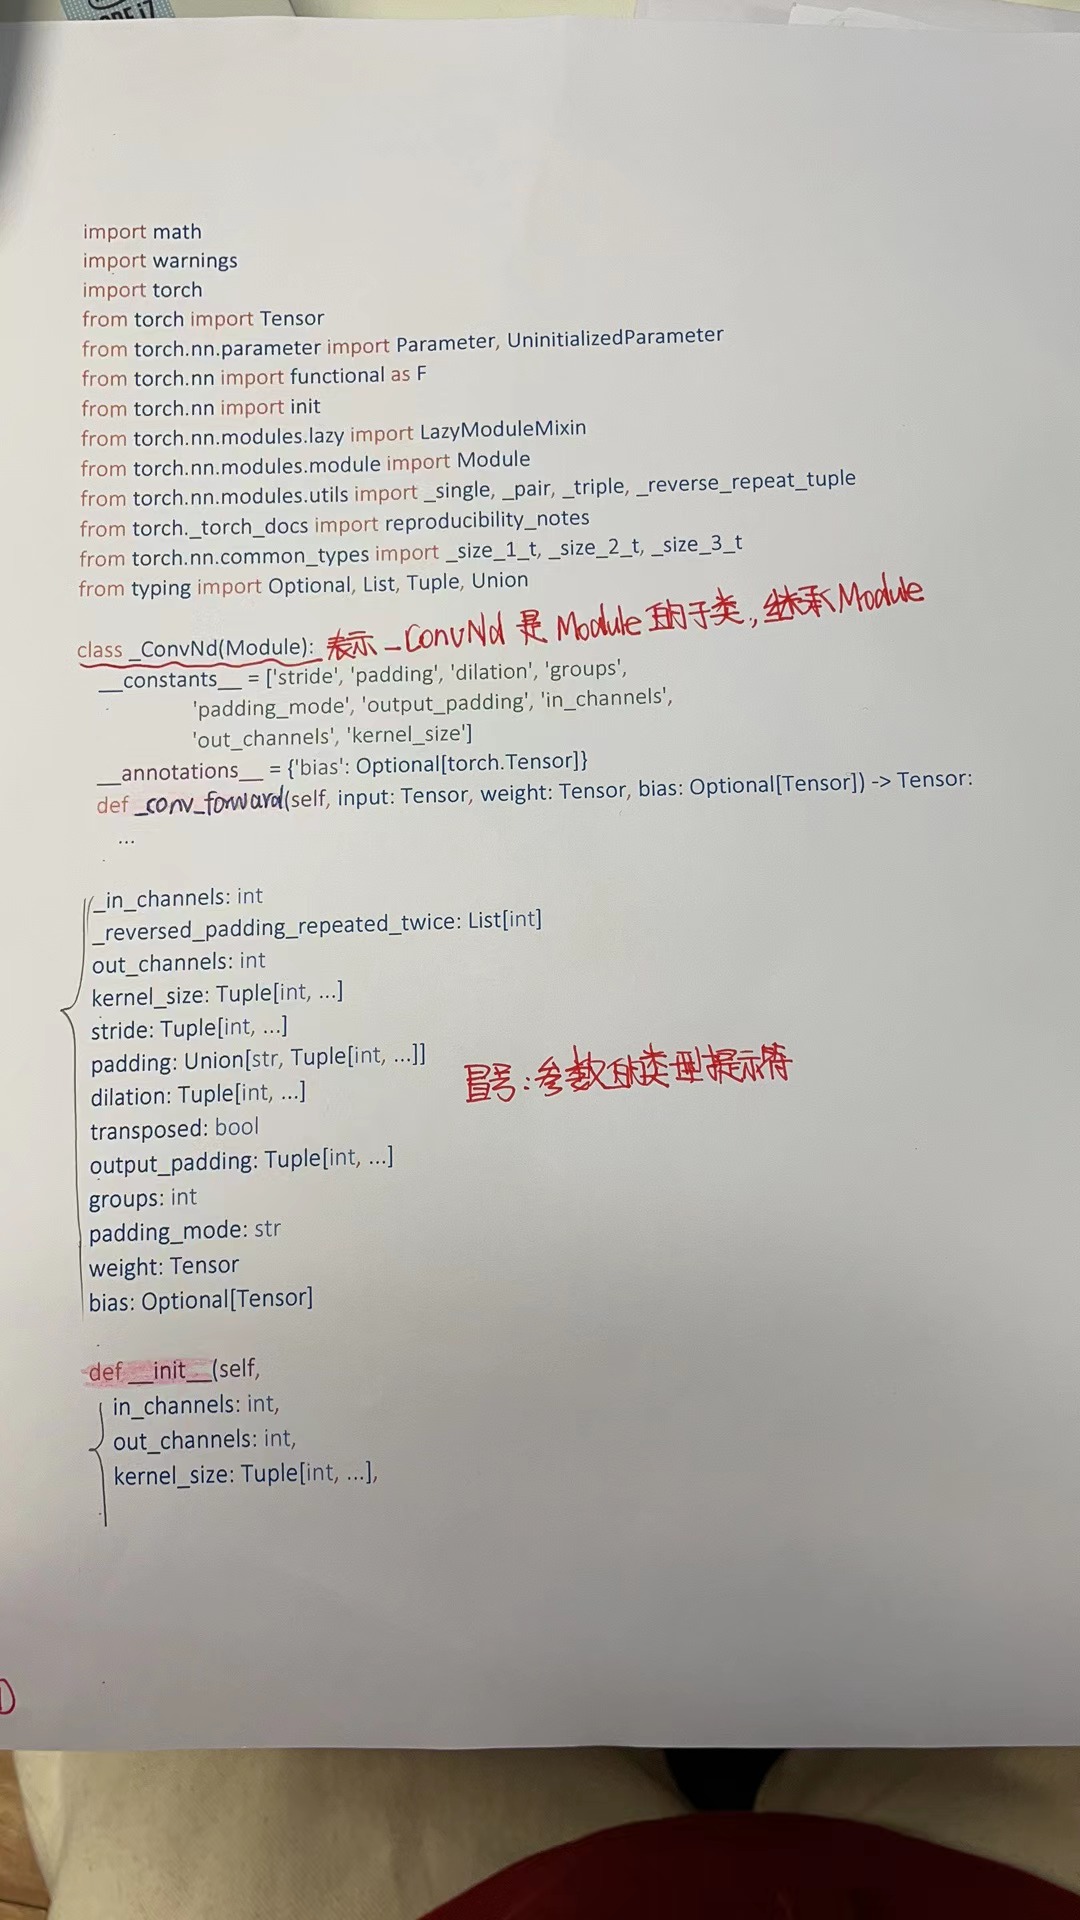 import math
import warnings
import torch
from torch import Tensor
from torch.nn.parameter import Parameter, UninitializedParameter
from torch.nn import functional as F
from torch.nn import init
from torch.nn.modules.lazy import LazyModuleMixin
from torch.nn.modules.module import Module
from torch.nn.modules.utils import _single, _pair, _triple, _reverse_repeat_tuple
from torch._torch_docs import reproducibility_notes
from torch.nn.common_types import _size_1_t, _size_2_t, _size_3_t
from typing import Optional, List, Tuple, Union
class _ConvNd(Module): 表示_ConvNd 是 Module 的子类,继承Module
__constants__ = ['stride', 'padding', 'dilation', 'groups',
'padding_mode', 'output_padding', 'in_channels',
'out_channels', 'kernel_size']
__annotations__ = {'bias': Optional[torch.Tensor]}
def _conv_forward(self, input: Tensor, weight: Tensor, bias: Optional[Tensor]) -> Tensor:
...
_in_channels: int
_reversed_padding_repeated_twice: List[int]
out_channels: int
kernel_size: Tuple[int, ...]
stride: Tuple[int, ...]
padding: Union[str, Tuple[int, ...]]
冒号:参数的类型提示符
dilation: Tuple[int, ...]
transposed: bool
output_padding: Tuple[int, ...]
groups: int
padding_mode: str
weight: Tensor
bias: Optional[Tensor]
def __init__(self,
in_channels: int,
out_channels: int,
kernel_size: Tuple[int, ...],